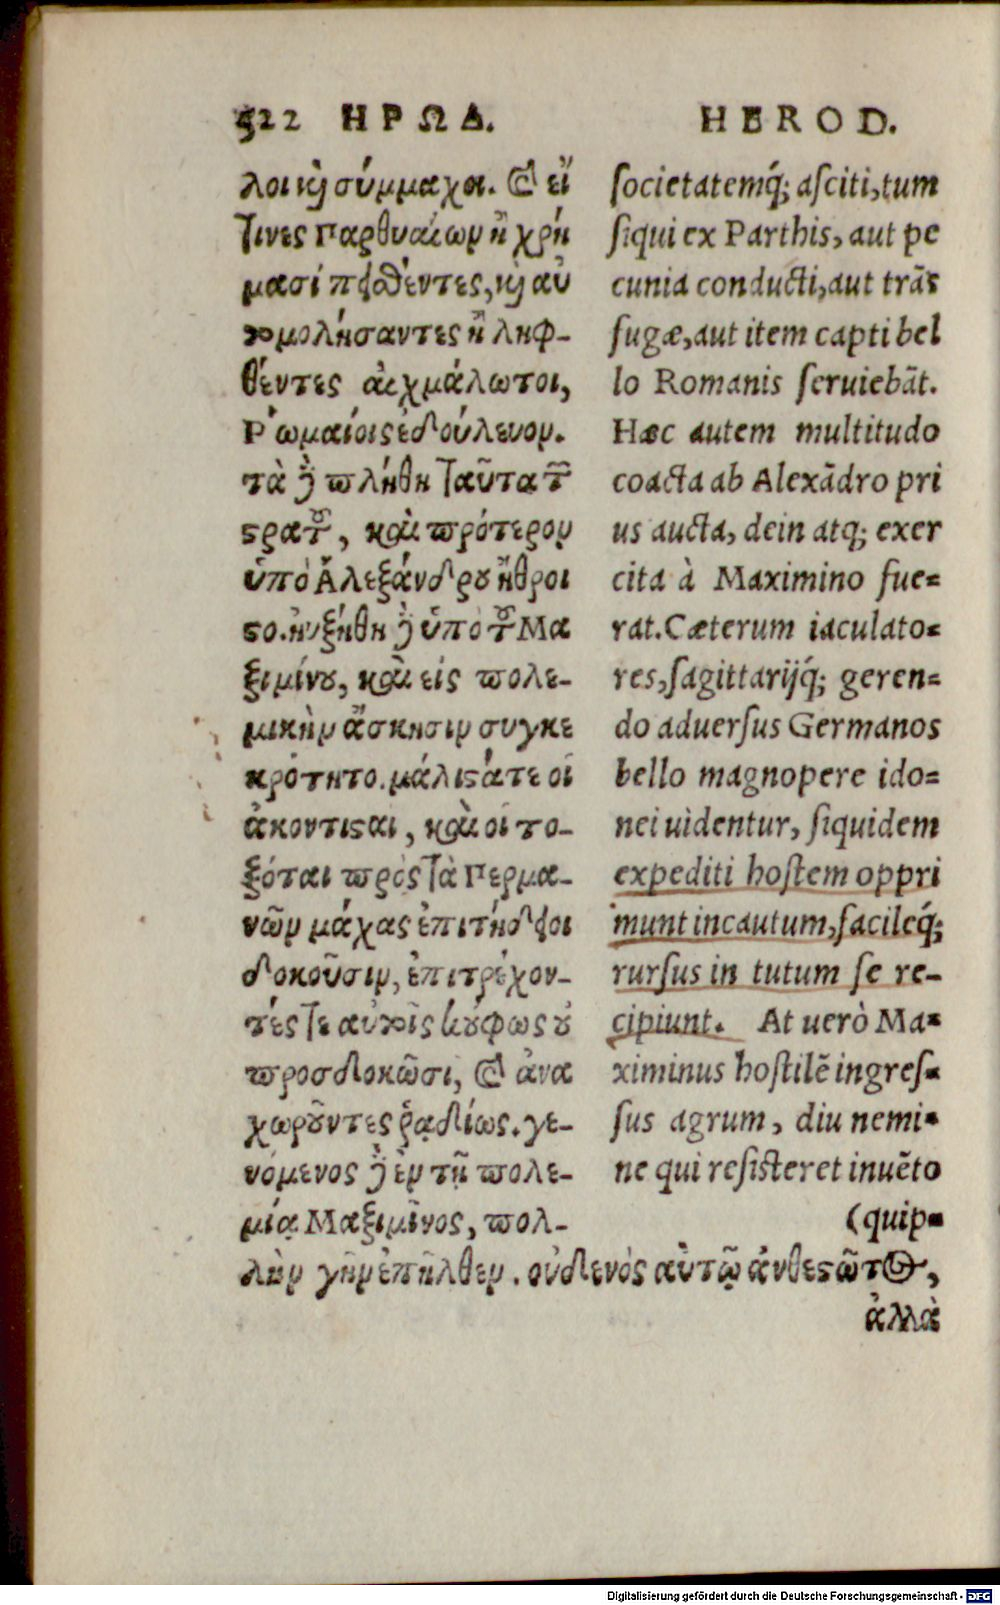 522 ΗΡΩΔ.
λοι καὶ σύμμαχοι. καὶ εἴ
τινες Παρθυαίων ἢ χρή
μασι πεισθέντες, καὶ αὐ
τομολήσαντες ἢ ληφ-
θέντες αἰχμάλωτοι,
Ῥωμαίοις ἐδούλευον.
τὰ δὲ πλήθη ταῦτα τοῦ
στρατοῦ, καὶ πρότερον
ὑπὸ Ἀλεξάνδρου ἤθροι
στο. ηὐξήθη δὲ ὑπὸ τοῦ Μα
ξιμίνου, καὶ εἰς πολε-
μικὴν ἄσκησιν συγκε
κρότητο. μάλιστά τε οἱ
ἀκοντισταὶ, καὶ οἱ το-
ξόται πρὸς τὰ Γερμα-
νῶν μάχας ἐπιτήδειοι
δοκοῦσιν, ἐπιτρέχον-
τές τε αὐτοῖς κούφως οὐ
προσδοκῶσι, καὶ ἀνα
χωροῦντες ῥᾳδίως. γε-
νόμενος δὲ ἐν τῇ πολε-
μίᾳ Μαξιμῖνος, πολ-
λὴν γῆν ἐπῆλθεν. οὐδενὸς αὐτῷ ἀνθεστῶτος,
ἀλλὰ
HEROD.
societatemq́; asciti, tum
siqui ex Parthis, aut pe
cunia conducti, aut trãs
fugæ, aut item capti bel
lo Romanis seruiebãt.
Hæc autem multitudo
coacta ab Alexãdro pri
us aucta, dein atq; exer
cita à Maximino fue=
rat. Cæterum iaculato=
res, sagittarijq́; geren=
do aduersus Germanos
bello magnopere ido=
nei uidentur, siquidem
expediti hostem oppri
munt incautum, facileq́;
rursus in tutum se re-
cipiunt. At uerò Ma=
ximinus hostilẽ ingres=
sus agrum, diu nemi=
ne qui resisteret inuẽto
(quip=
Digitalisierung gefördert durch die Deutsche Forschungsgemeinschaft - DFG